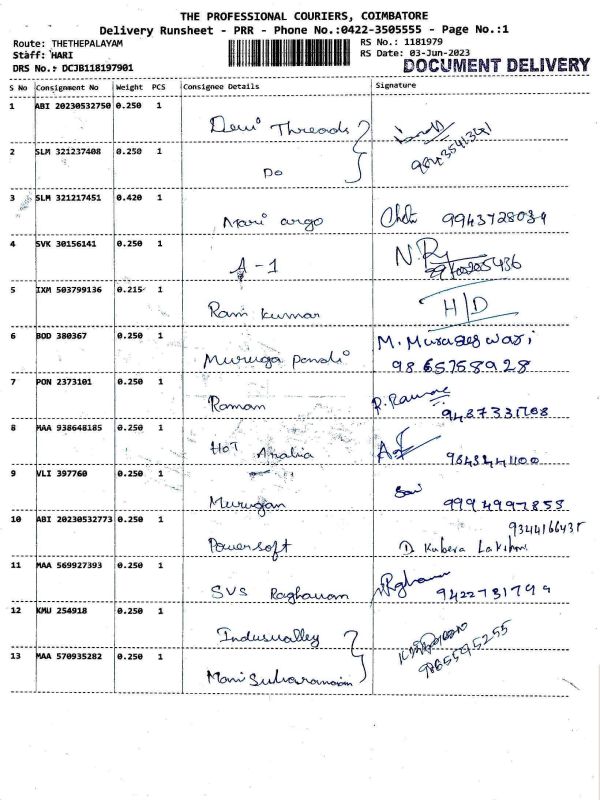 THE PROFESSIONAL COURIERS, COIMBATORE
Delivery Runsheet - PRR - Phone No.:0422-3505555 - Page No.:1
Route: THETHEPALAYAM RS No.: 1181979
Staff: HARI RS Date: 03-Jun-2023
DRS No.: DCJB118197901 DOCUMENT DELIVERY
S No Consignment No Weight PCS Consignee Details Signature
1 ABI 20230532750 0.250 1
Devi Threads
2 SLM 321237408 0.250 1
Do
3 SLM 321217451 0.420 1
Mari argo 9943728039
4 SVK 30156141 0.250 1
A-1
5 IXM 503799136 0.215 1
Ram kumar H/D
6 BOD 380367 0.250 1
M. Murugeswari
Muruga Pandi 9865758928
7 PON 2373101 0.250 1
Raman
8 MAA 938648185 0.250 1
HOT
9 VLI 397760 0.250 1
Murugan 9994997855
10 ABI 20230532773 0.250 1
Powersoft Kubera Lakshmi
11 MAA 569927393 0.250 1
SVS Raghavam
12 KMU 254918 0.250 1
Indusvalley
13 MAA 570935282 0.250 1 9865595255
Mani